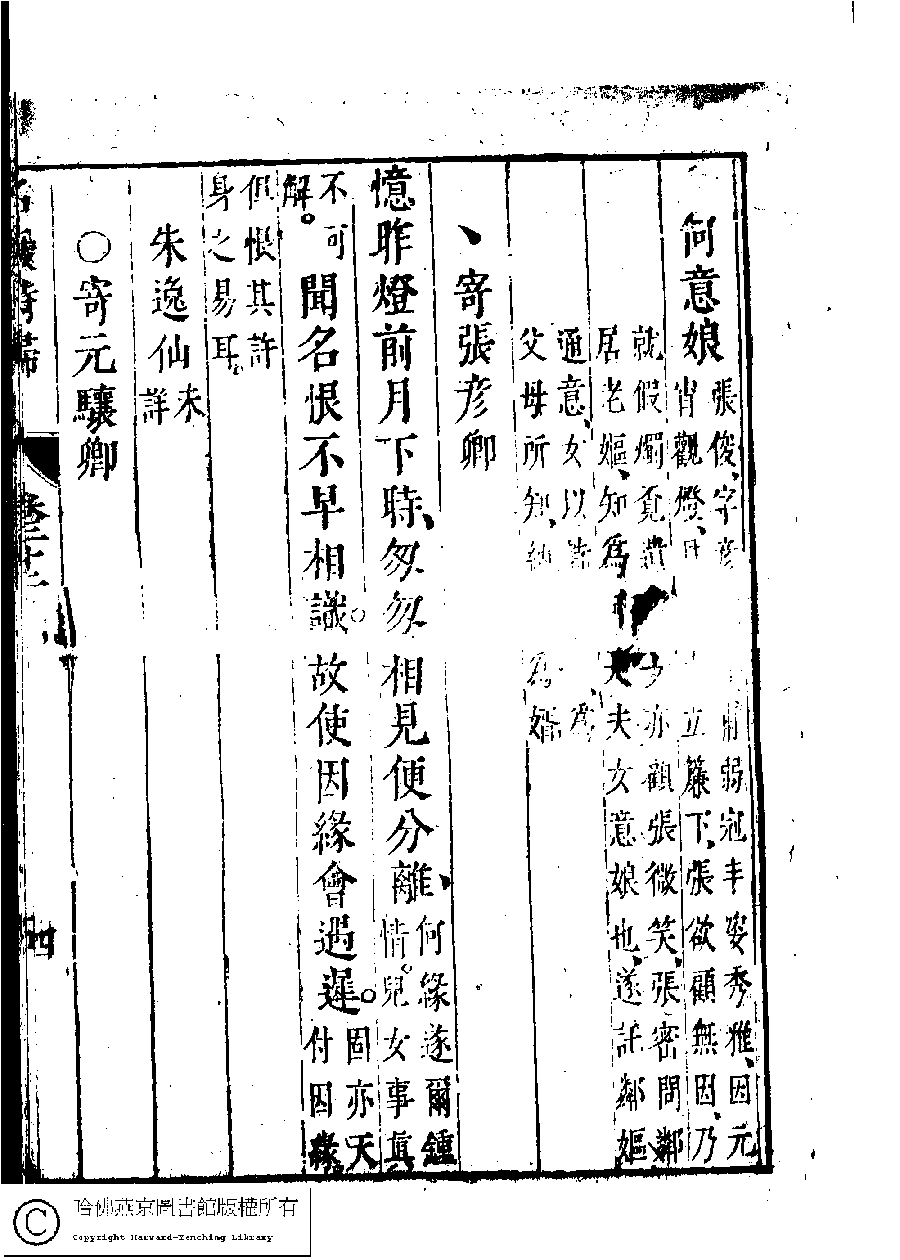 何意娘
張俊、字彥卿弱冠丰姿秀雅、因元
宵觀燈、立簾下、張欲顧無因、乃
就假燭覓遺亦覷張微笑、張密問鄰
居老嫗、知爲大夫女意娘也、遂託鄰嫗
通意、女以詩爲
父母所知、納爲婿
、寄張彥卿
憶昨燈前月下時、匆匆相見便分離、
何緣遂爾鍾
情。兒女事真
不可
解。
聞名恨不早相識。故使因緣會遇遲。
固亦天
付因緣
但恨其許
身之易耳。
朱逸仙
未
詳
○寄元驤卿
名媛詩歸
四
哈佛燕京圖書館版權所有
Copyright Harvard-Yenching Library